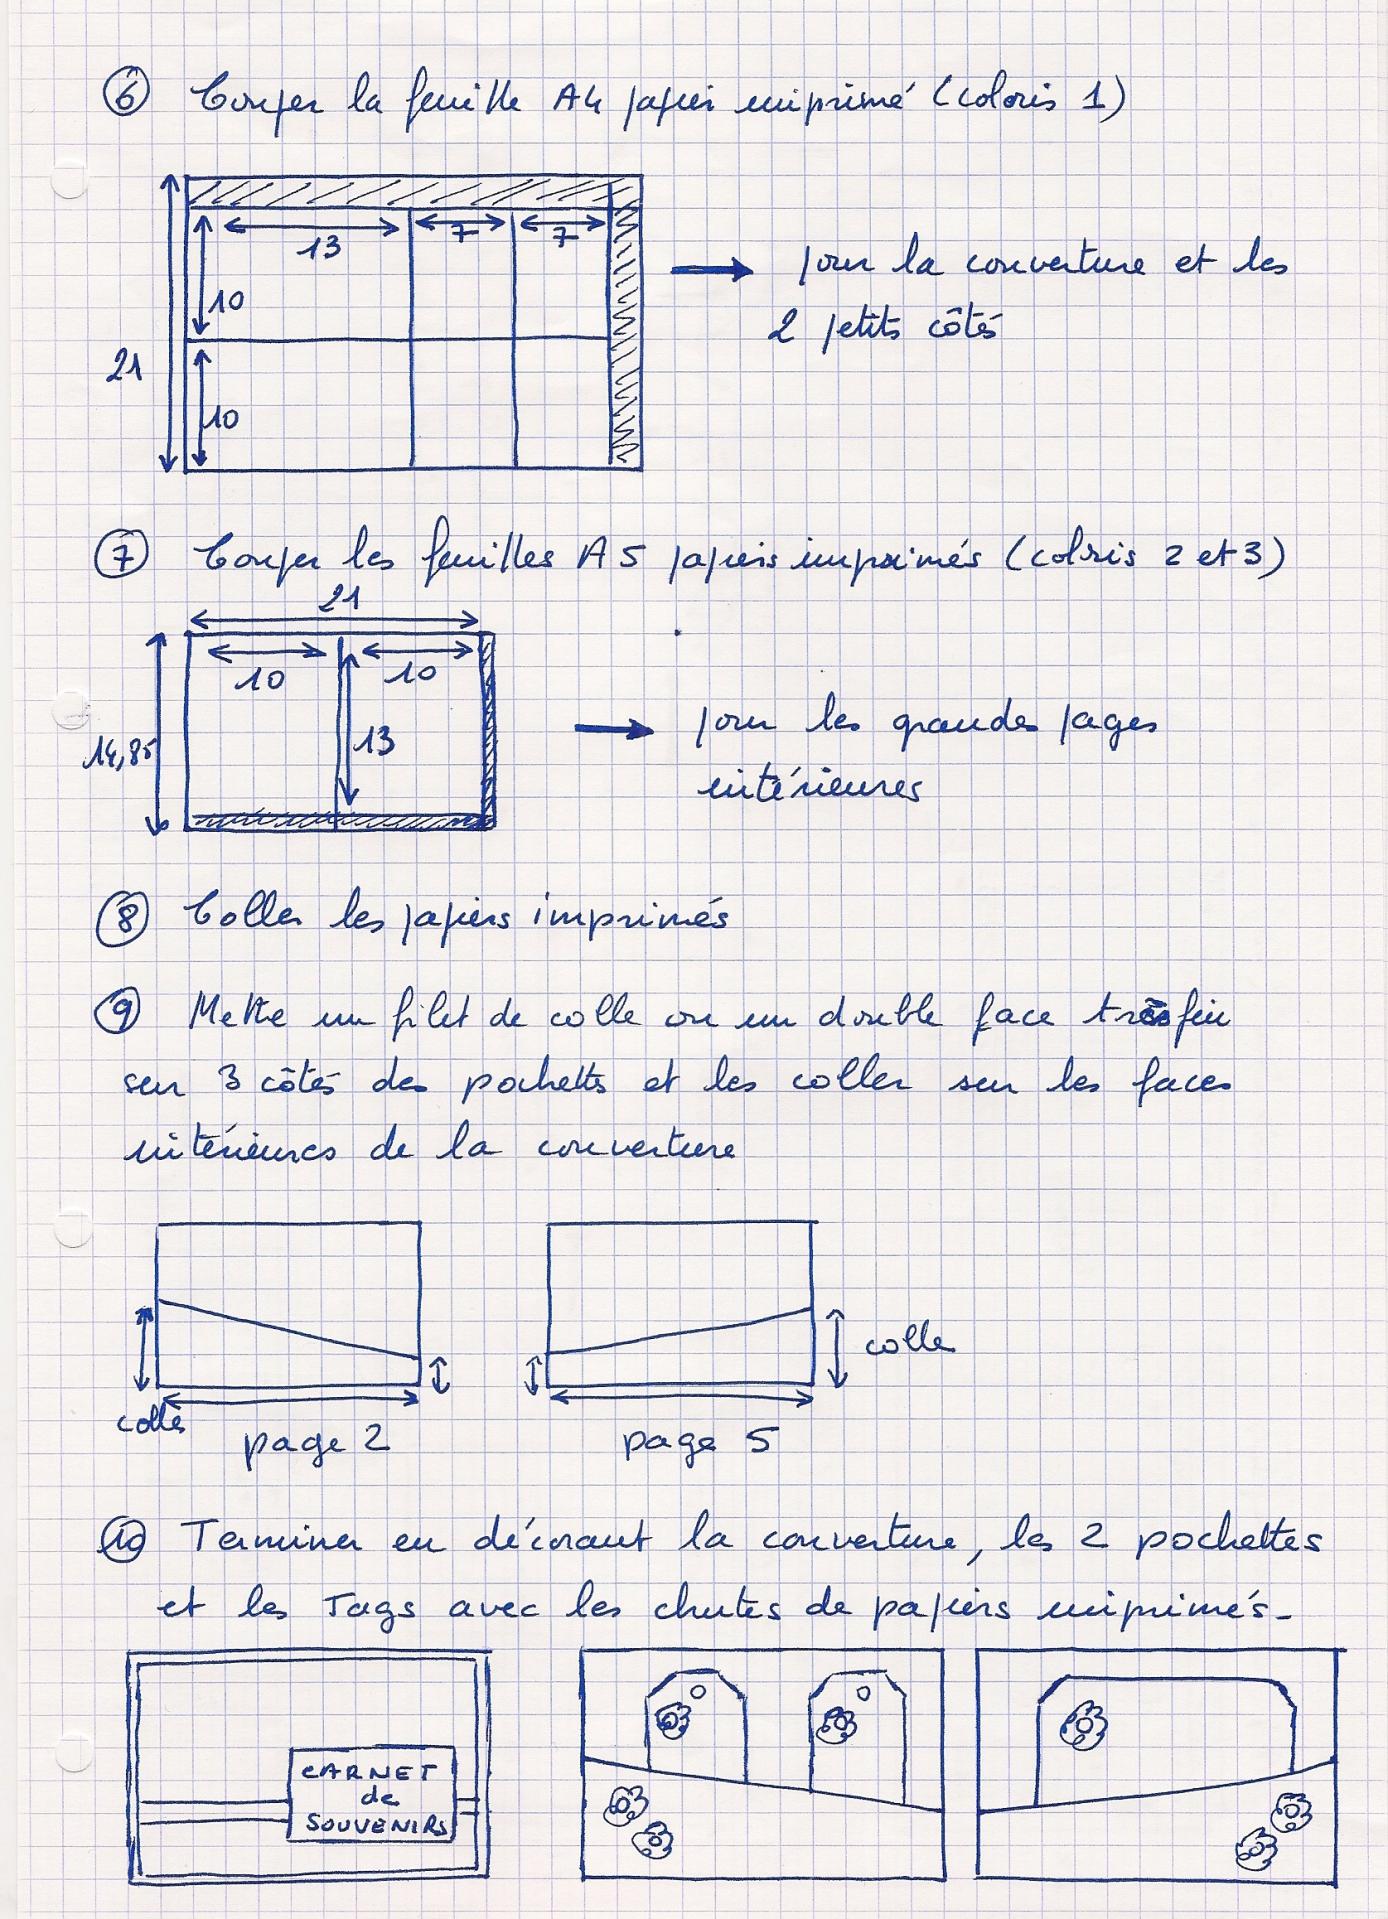 ⑥ Couper la feuille A4 papier imprimé (coloris 1)
13 7 7
10
21
10
→ pour la couverture et les
2 petits côtés
⑦ Couper les feuilles A5 papiers imprimés (coloris 2 et 3)
21
10 10
14,85
13
→ pour les grandes pages
intérieures
⑧ Coller les papiers imprimés
⑨ Mettre un filet de colle ou un double face très fin
sur 3 côtés des pochettes et les coller sur les faces
intérieures de la couverture
colle
colle
page 2
page 5
⑩ Terminer en décorant la couverture, les 2 pochettes
et les Tags avec les chutes de papiers imprimés.
CARNET
de
SOUVENIRS